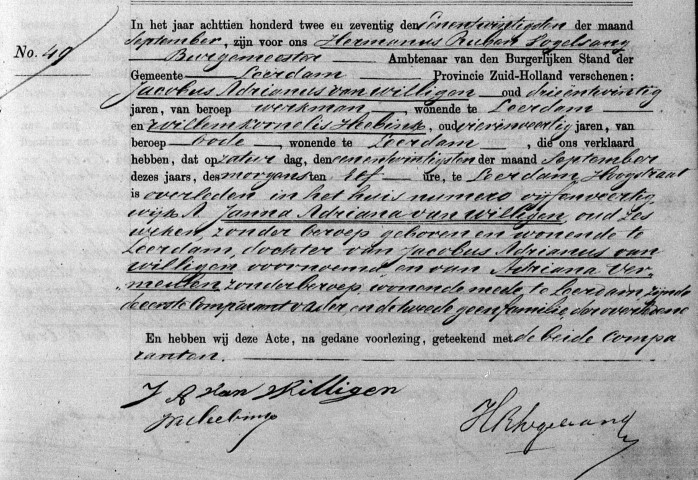 In het jaar achttien honderd twee en zeventig den eenentwintigsten der maand
September, zijn voor ons Hermanus Rubert Vogelsang
Burgemeester Ambtenaar van den Burgerlijken Stand der
No. 49
Gemeente Leerdam Provincie Zuid-Holland verschenen:
Jacobus Adrianus van Willigen oud drieëntwintig
jaren, van beroep werkman, wonende te Leerdam
en Willem Kornelis Hebink, oud vierenveertig jaren, van
beroep bode, wonende te Leerdam, die ons verklaard
hebben, dat op zatur dag, den eenentwintigsten der maand September
dezes jaars, des morgens ten elf ure, te Leerdam Hoogstraat
is overleden in het huis numero vijfenveertig
wijk A. Janna Adriana van Willigen, oud zes
weken, zonder beroep, geboren en wonende te
Leerdam, dochter van Jacobus Adrianus van
Willigen voornoemd, en van Adriana Ver-
"meulen, zonder beroep, wonende mede te Leerdam, zijnde
de eerste Comparant vader, en de tweede geen familie, der overledene
En hebben wij deze Acte, na gedane voorlezing, geteekend met de beide Compa
ranten.
J A van Willigen
HRVogelsang